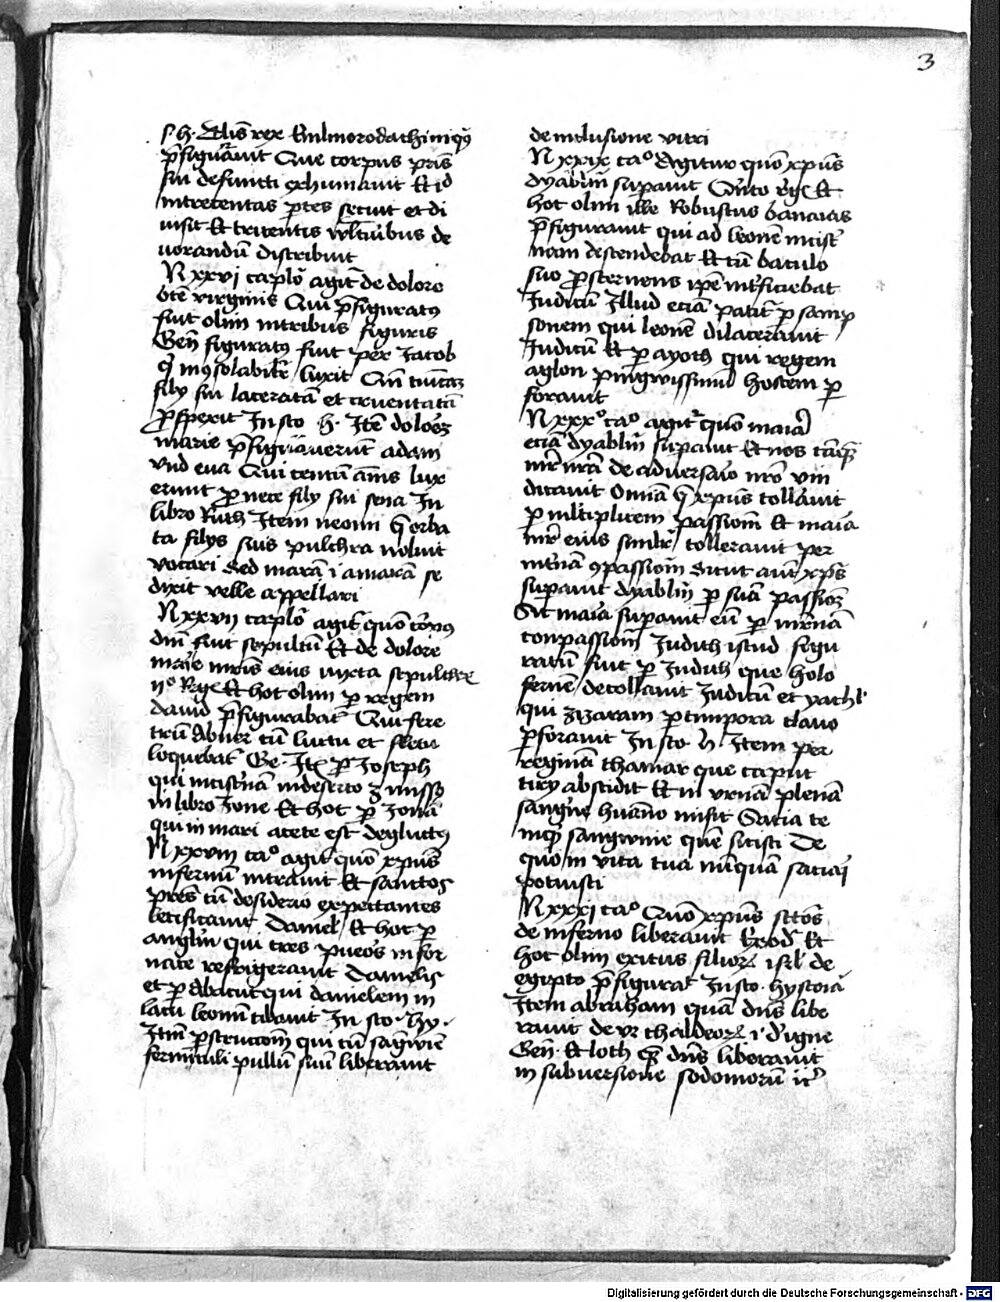 3
s. h. Alius rex Evilmorodach iniquus
p̄figuravit Que corpus p̄ris
sui defuncti exhumavit Et id
in trecentas ꝑtes secuit et di
visit Et tricentis vulturibus de
vorandū distribuit
N xxvi caplo agit̄ de dolore
virginis Qui p̄figuratus
fuit olim in tribus figuris
Gen̄ figuratus fuit per Jacob
lūxit Cum tunicā
filij sui laceratā et cruentatā
ꝓspexit In sco h. Itē dolorē
marie p̄figuraverunt adam
vnd eva Qui centū annis lux
erunt ꝓ nece filij sui seia In
libro Ruth Item neomi q̄ orba
ta filijs suis pulchra noluit
vocari Sed marā i amarā se
dixit velle appellari
N xxvij caplo agit̄ quō corpus
dm̄ fuit sepultū Et de dolore
marie mr̄is eius iuxta sepulchrū
ij° Reg Et hoc olim per regem
david p̄figurabat̄ Qui fere
trū Abner cū luctu et fletu
loquebat̄ Ge. Itē ꝑ Joseph
qui in cisternā in deserto ē missus
in libro Jone Et hoc ꝑ Jonā
qui in mari a cete est deglutitus
N xxviii ca° agit̄ quō xp̄us
infernū intravit Et sanctos
pres cū desiderio expectantes
letificavit Daniel Et hoc ꝑ
anglm̄ qui tres pueros in for
nace refrigeravit Danielis
et ꝑ Abacuc qui danielem in
lacu leonū cibavit In sco. hy.
Itm̄ ꝑ strucconē qui cū sagwīe
fermiculi pullū suū liberavit
de inclusione vitri
N xxix ca° Agitur quō xp̄us
dyablm̄ supavit Qnto Reg Et
hoc olim ille Robustus banaias
p̄figuravit qui ad leonē in cist̄
nam descendebat Et cū baculo
suo ꝓsternens ipē int̄ficiebat
Judicū Illud eciā patit̄ ꝑ samp
sonem qui leonē dilaceravit
Judicū Et ꝑ ayoth qui regem
aglon pingwissimū hostem ꝑ
foravit
N xxx° ca° agit̄ quō maria
eciā dyablm̄ supavit Et nos tāq̄
mr̄ nrā de adversario nro vin
dicavit Omnia q̄ xp̄us tollavit
ꝑ multiplicem passionē Et maria
mr̄ eius similr̄ tolleravit per
mt̄nā ꝯpassionē Sicut aūt xp̄s
supavit dyablm̄ ꝑ suā passionē
Sic maria supavit eū ꝑ mr̄nam
conpassionē Judith istud figu
ratū fuit ꝑ Judith que holo
fernē decollavit Judicū et yachel
qui zizaram ꝑ timpora clavo
ꝑforavit In sco. h. Item per
reginā thamar que caput
ciry abscidit Et in vrnā plenā
sangīne huāno misit Sacia te
inq̄ sangwine quē sitisti De
quo in vita tua nūquā saciari
potuisti
N xxxi ca° Quō xp̄us sc̄tōs
de inferno liberavit Exod Et
hoc olim exitus filiorꝝ isrl de
egypto p̄figurat̄ In sco. hystoria
Item abraham quā dn̄s libe
ravit de vr chaldeorꝝ i. d'igne
Gen. Et loth q̄ dn̄s liberavit
in subversione sodomorū it̄
Digitalisierung gefördert durch die Deutsche Forschungsgemeinschaft - DFG